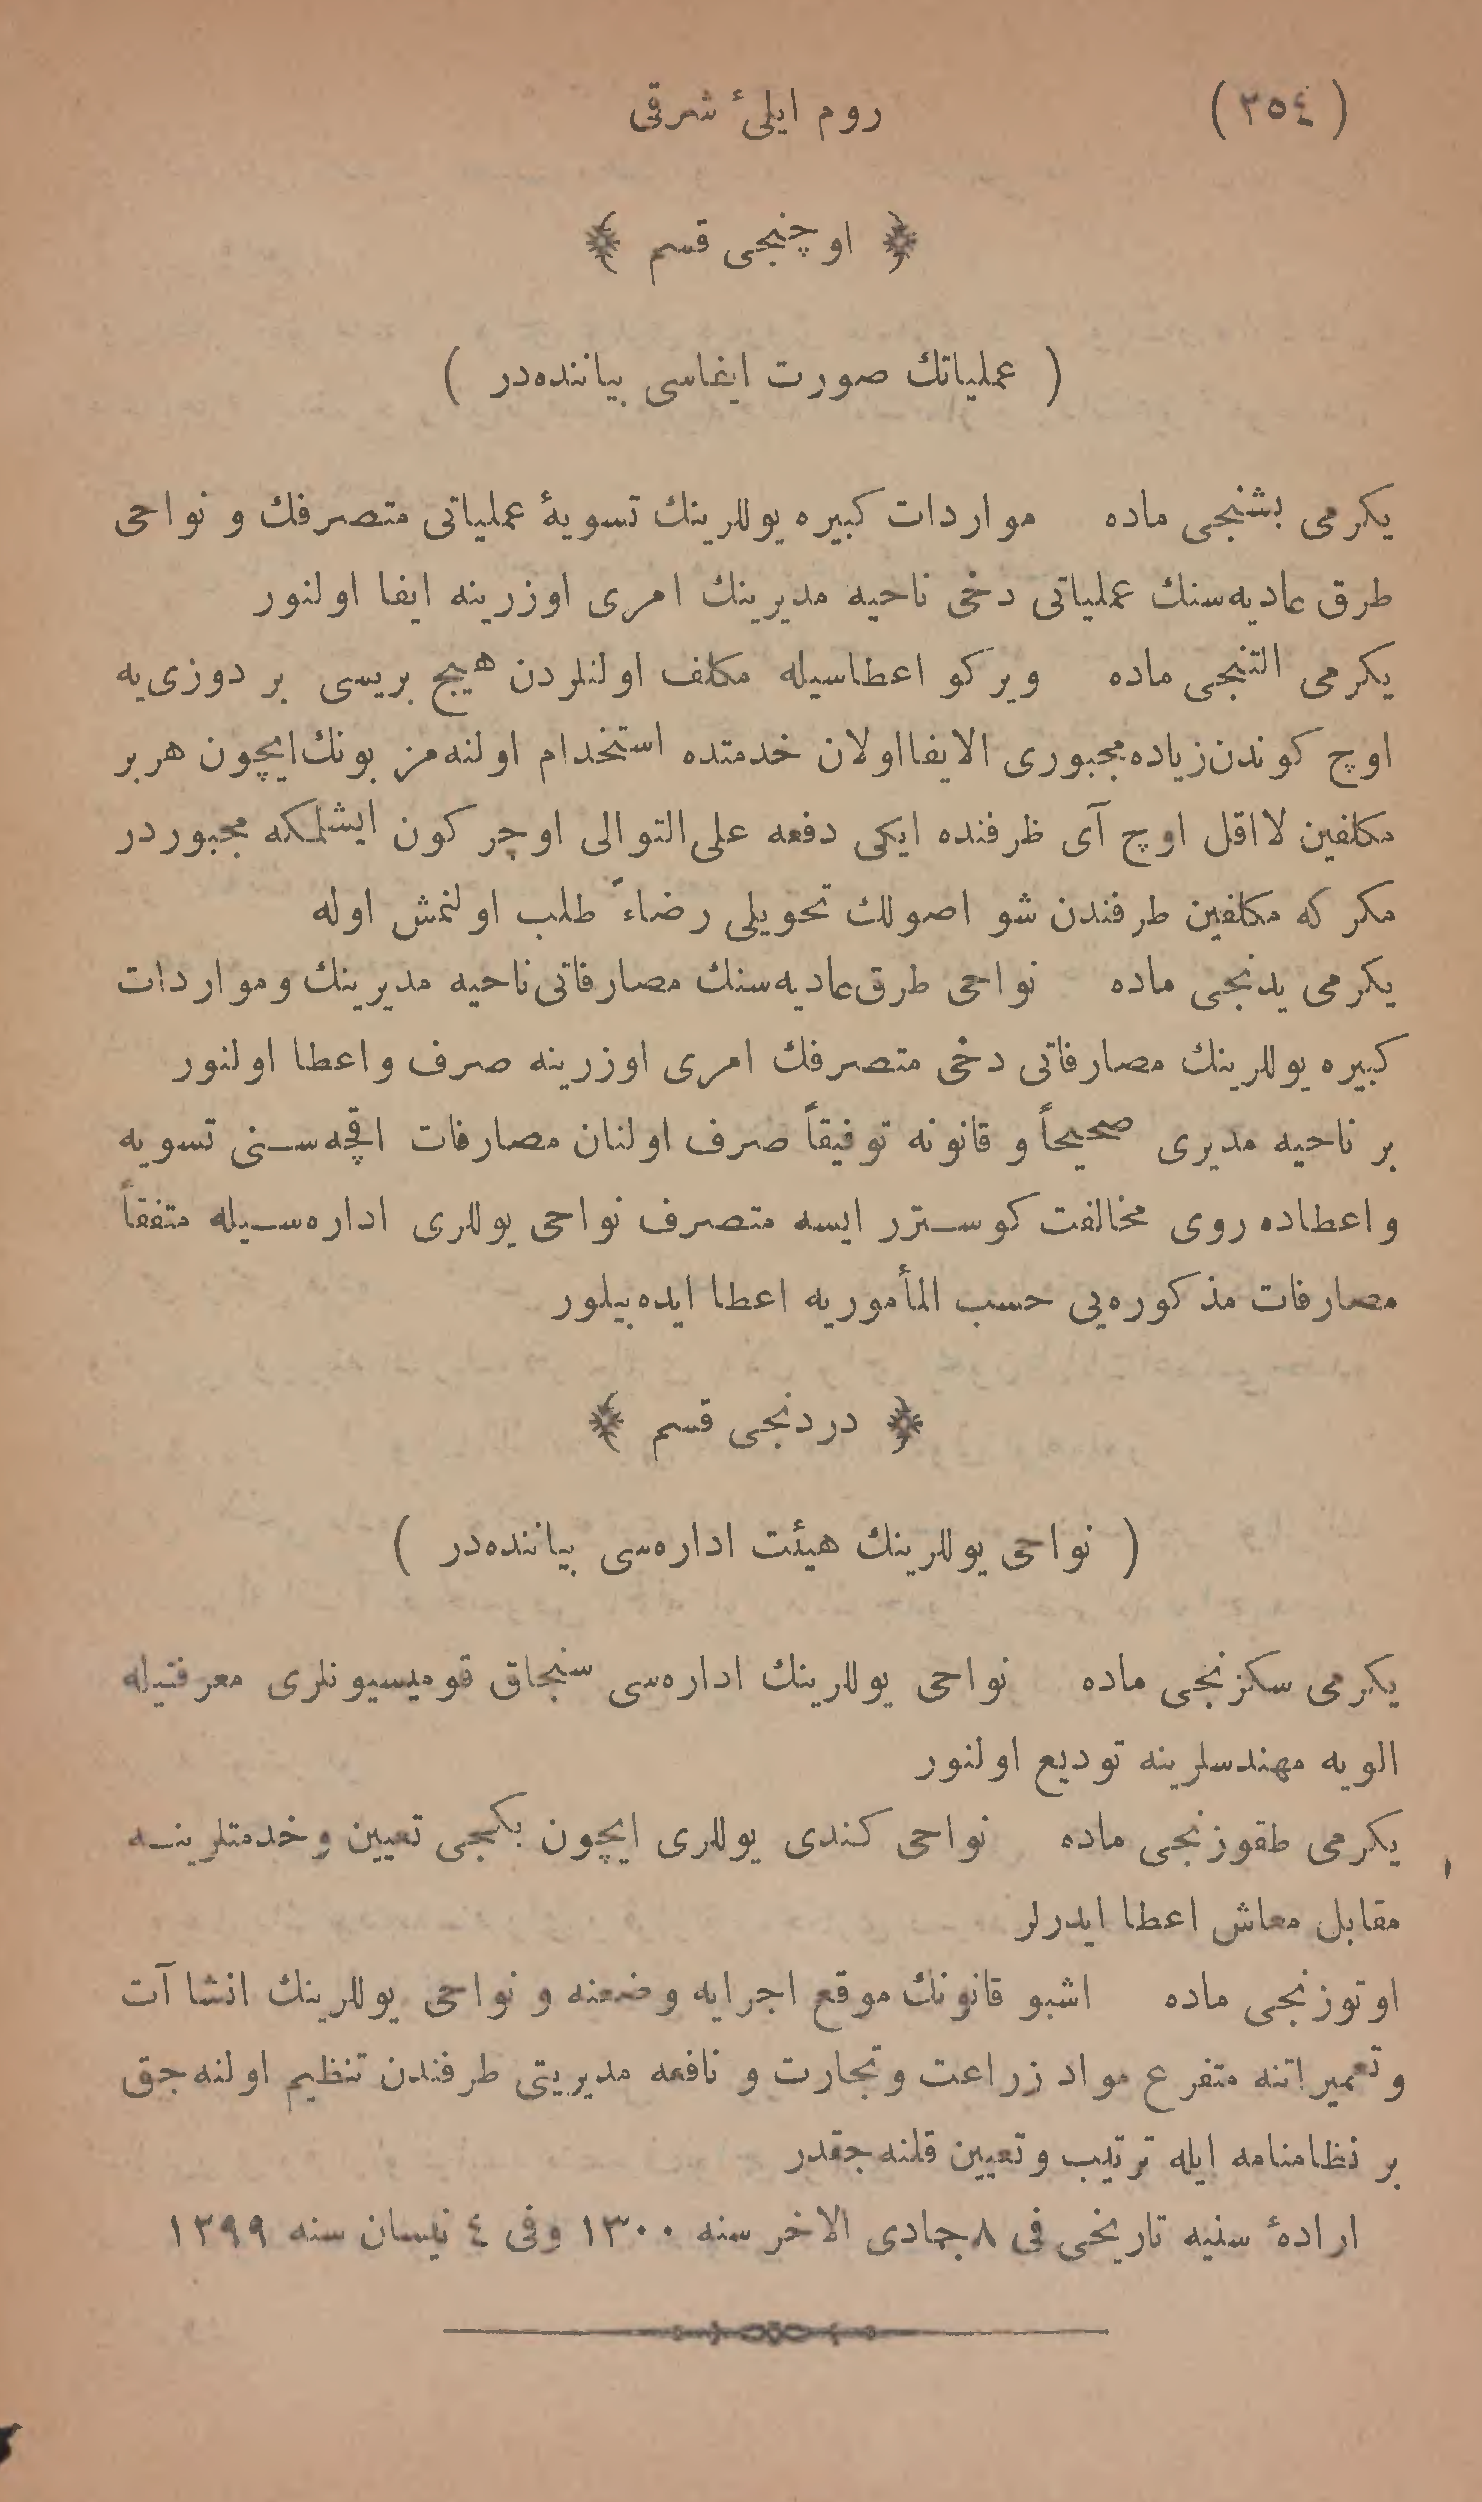 (٢٥٤) روم ايلئ شرقى
﴿ اوچنجى قسم ﴾
( عملياتك صورت ايفاسى بياننده‌در )
يكرمى بشنجى ماده مواردات كبيره يوللرينك تسويۀ عملياتى متصرفك و نواحى
طرق عاديه‌سنك عملياتى دخى ناحيه مديرينك امرى اوزرينه ايفا اولنور
يكرمى التنجى ماده ويركو اعطاسيله مكلف اولنلردن هيچ بريسى بر دوزى‌يه
اوچ كوندن زياده مجبورى الايفا اولان خدمتده استخدام اولنه‌مز بونك ايچون هر بر
مكلفين لااقل اوچ آى ظرفنده ايكى دفعه على التوالى اوچر كون ايشلمكه مجبوردر
مكر كه مكلفين طرفندن شو اصولك تحويلى رضاءً طلب اولنمش اوله
يكرمى يدنجى ماده نواحى طرق عاديه‌سنك مصارفاتى ناحيه مديرينك و مواردات
كبيره يوللرينك مصارفاتى دخى متصرفك امرى اوزرينه صرف و اعطا اولنور
بر ناحيه مديرى صحيحاً و قانونه توفيقاً صرف اولنان مصارفات اقچه‌سنى تسويه
و اعطاده روى مخالفت كوسترر ايسه متصرف نواحى يوللرى اداره‌سيله متفقاً
مصارفات مذكوره‌يى حسب المأموريه اعطا ايده‌بيلور
﴿ دردنجى قسم ﴾
( نواحى يوللرينك هيئت اداره‌سى بياننده‌در )
يكرمى سكزنجى ماده نواحى يوللرينك اداره‌سى سنجاق قوميسيونلرى معرفتيله
الويه مهندسلرينه توديع اولنور
يكرمى طقوزنجى ماده نواحى كندى يوللرى ايچون بكجى تعيين و خدمتلرينه
مقابل معاش اعطا ايدرلر
اوتوزنجى ماده اشبو قانونك موقع اجرايه وضعنه و نواحى يوللرينك انشاآت
و تعميراتنه متفرع مواد زراعت و تجارت و نافعه مديريتى طرفندن تنظيم اولنه‌جق
بر نظامنامه ايله ترتيب و تعيين قلنه‌جقدر
ارادۀ سنيه تاريخى فى ٨ جمادى الاخر سنه ١٣٠٠ وفى ٤ نيسان سنه ١٢٩٩